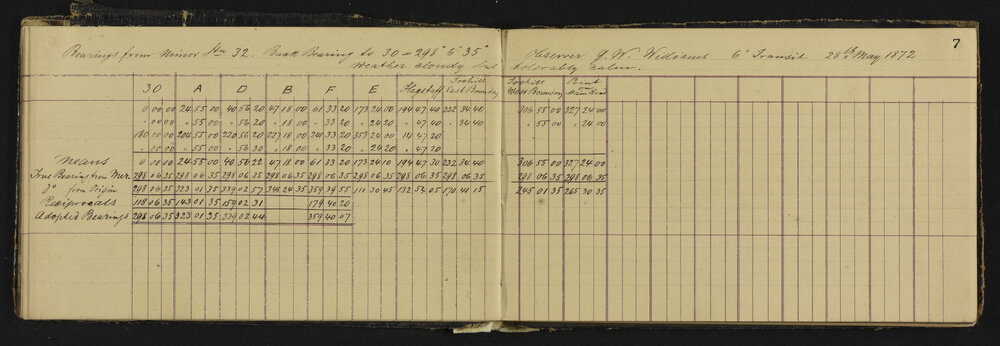 7
Bearings from Minor Stn 32. Back Bearing to 30 = 298° 6' 35" Observer G. W. Williams 6" Transit 28th May 1872
Weather cloudy but tolerably calm.
30 A D B F E Flagstaff Foxhill East Boundary Foxhill West Boundary Point Main Road
0 00 00 24 55 00 40 56 20 47 18 00 61 33 20 173 24 00 194 47 40 232 34 40 306 55 00 327 24 00
" 00 00 " 55 00 " 56 20 " 18 00 " 33 20 " 24 20 " 47 40 " 34 40 " 55 00 " 24 00
180 00 00 204 55 00 220 56 20 227 18 00 241 33 20 353 24 00 14 47 20
" 00 00 " 55 00 " 56 30 " 18 00 " 33 20 " 24 20 " 47 20
Means 0 00 00 24 55 00 40 56 22 47 18 00 61 33 20 173 24 10 194 47 30 232 34 40 306 55 00 327 24 00
True Bearing from Mer. 298 06 35 298 06 35 298 06 35 298 06 35 298 06 35 298 06 35 298 06 35 298 06 35 298 06 35 298 06 35
Do from Origin 298 06 35 323 01 35 339 02 57 345 24 35 359 39 55 111 30 45 132 54 05 170 41 15 245 01 35 265 30 35
Reciprocals 118 06 35 143 01 35 159 02 31 179 40 20
Adopted Bearings 298 06 35 323 01 35 339 02 44 359 40 07